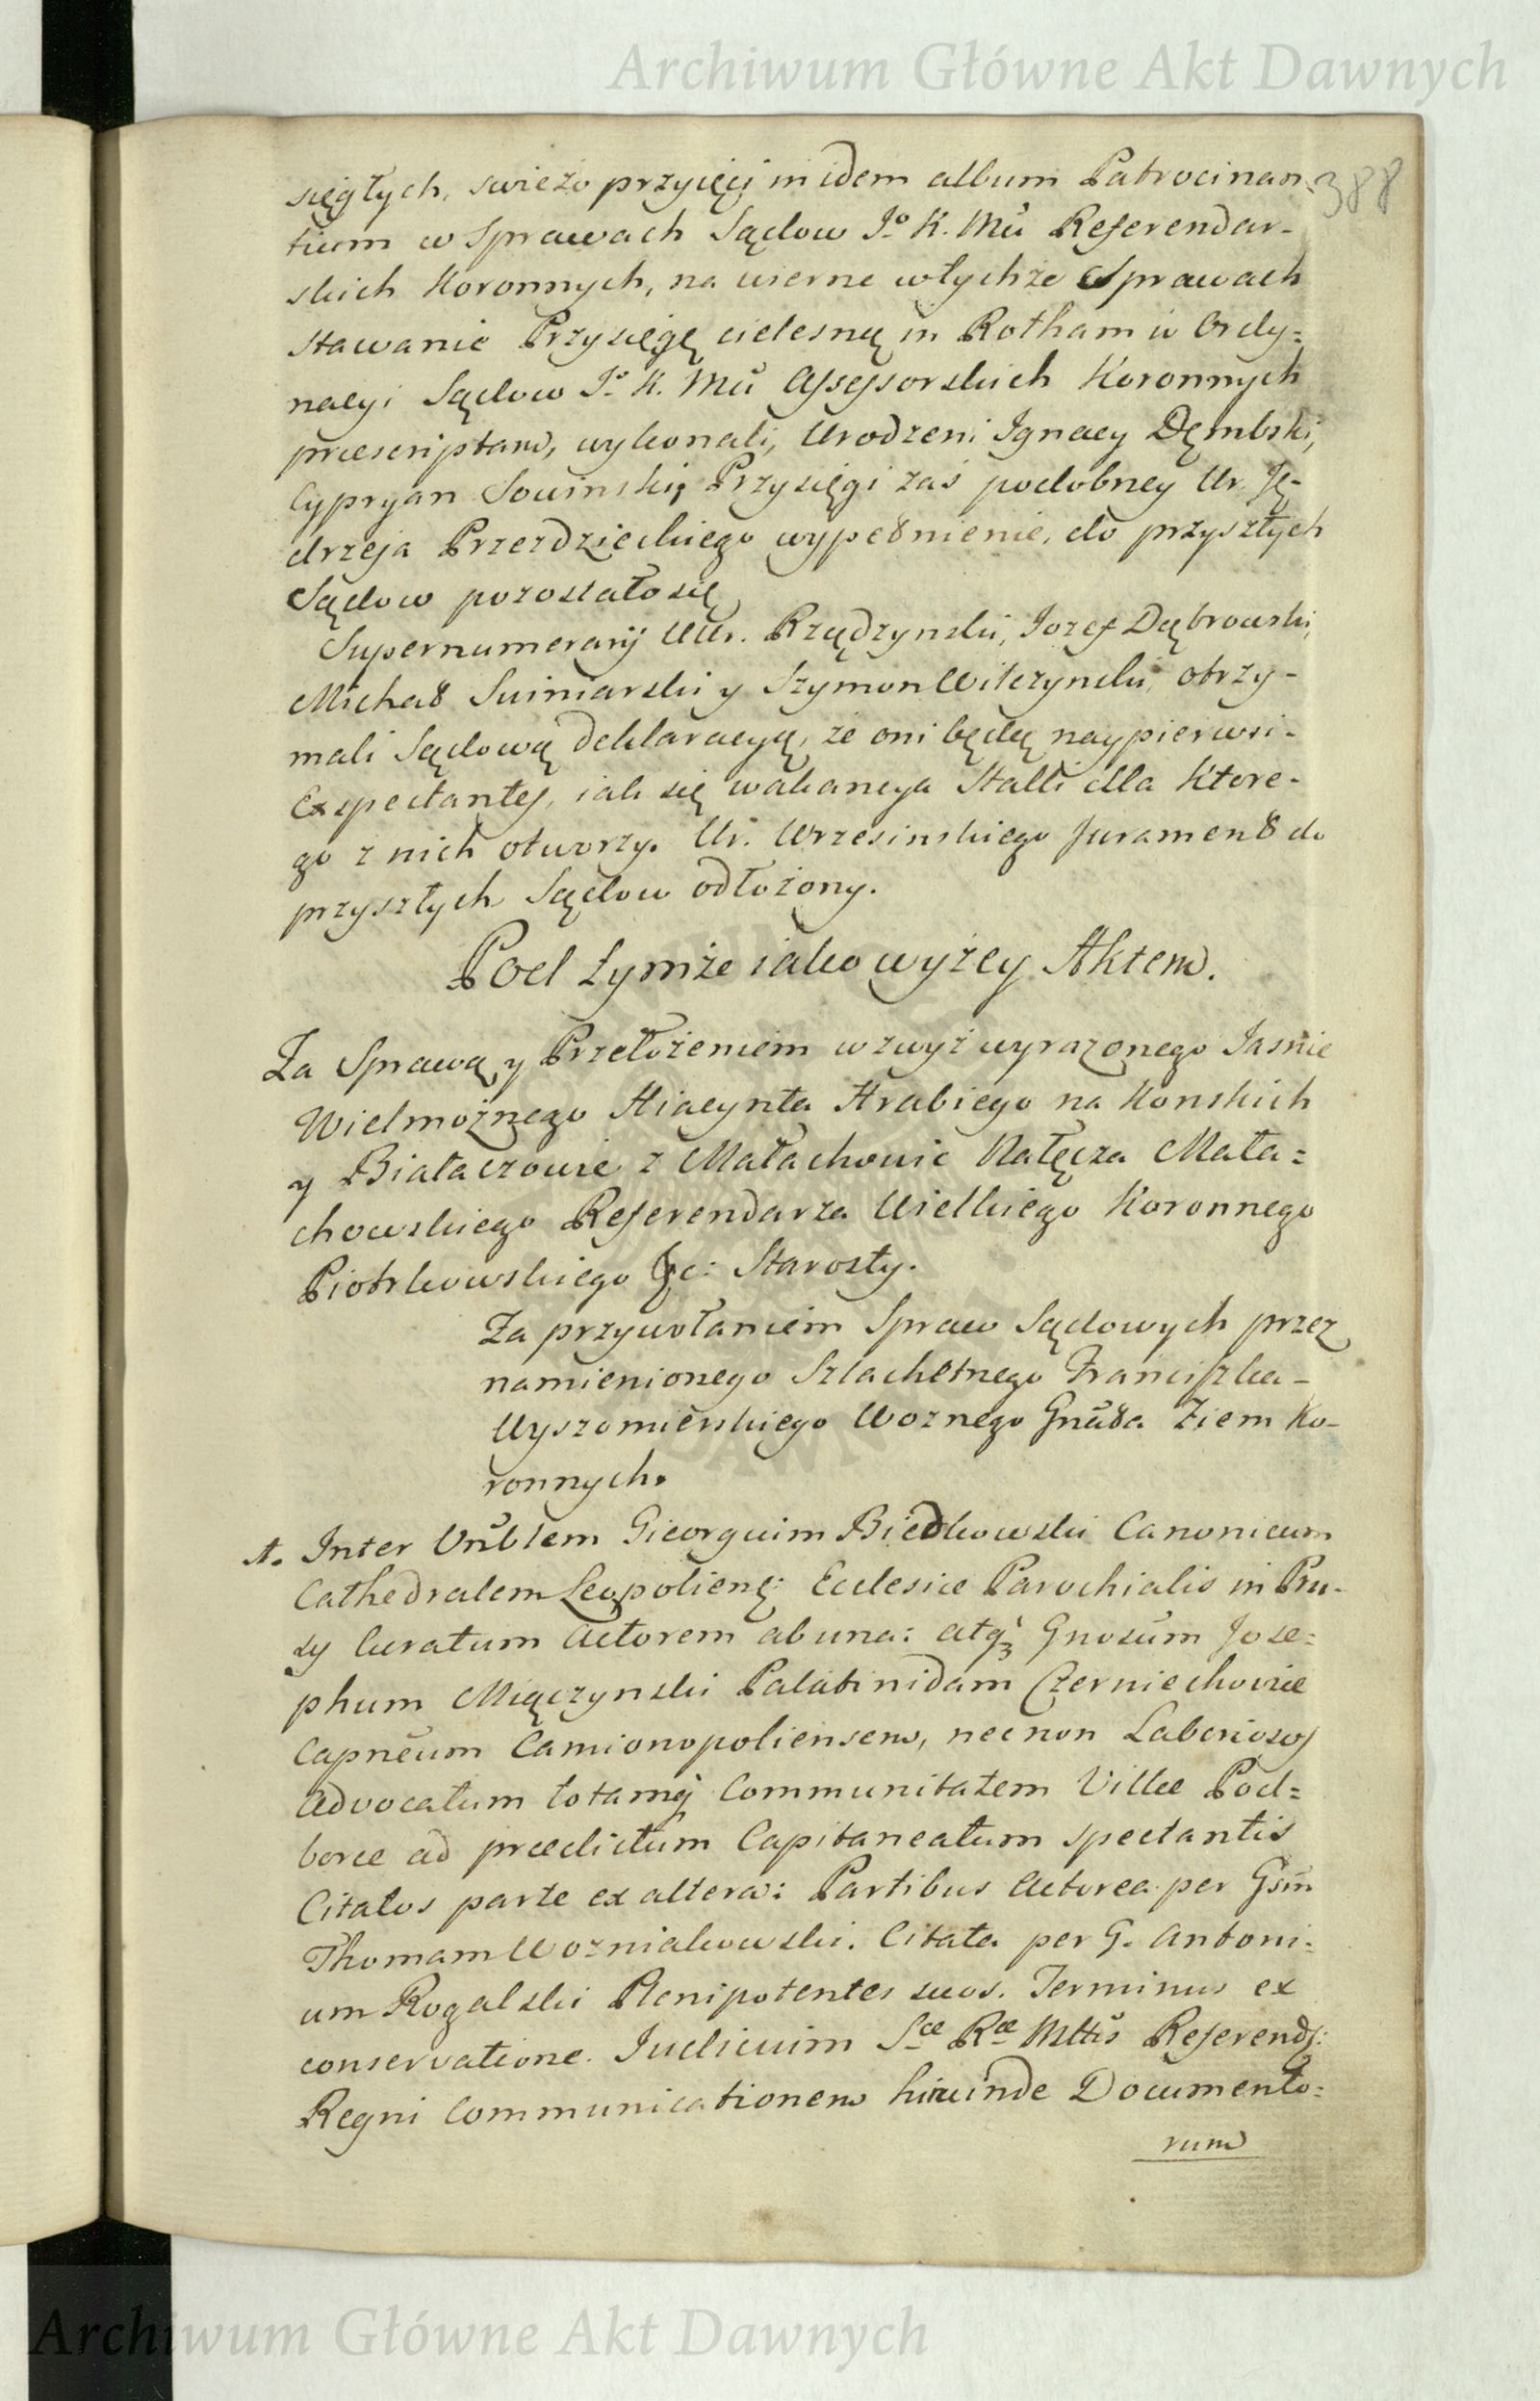 Archiwum Główne Akt Dawnych
388
sięgłych, swieżo przyięci in idem album Patrocinan
tium w Sprawach Sądow Jº K. Mci Referendar-
skich Koronnych, na wierne w tychże Sprawach
stawanie Przysięgę cielesną in Rotham w Ordy=
nacyi Sądow Jº K. Mci Assessorskich Koronnych
præscriptam, wykonali, Urodzeni Ignacy Dęmbski,
Cypryan Sowinski, Przysięgi zaś podobney Ur. Ję-
drzeja Przezdzieckiego wypełnienie, do przyszłych
Sądow pozostało się
Supernumerarij UUr. Rządzynski, Jozef Dąbrowski,
Michał Suiniarski y Szymon Wilczynski, otrzy-
mali Sądową deklaracyą, że oni będą naypierwsi-
Exspectantes, iak się wakancya Stalli dla ktore-
go z nich otworzy. Ur. Wrzesinskiego Jurament do
przyszłych Sądow odłożony.
Pod tymże iako wyżey Aktem.
Za Sprawą y Przełożeniem wzwyż wyrazonego Jasnie
Wielmożnego Hiacynta Hrabiego na Konskich
y Białaczowie z Małachowic Nałęcza Mała=
chowskiego Referendarza Wielkiego Koronnego
Piotrkowskiego &c: Starosty.
Za przywołaniem Spraw Sądowych przez
namienionego Szlachetnego Franciszka-
Wyszomierskiego Woznego Gnała Ziem Ko-
ronnych.
A. Inter Vnblem Georguim Biedkowski Canonicum
Cathedralem Leopolienę: Ecclesiæ Parochialis in Pru-
sy Curatum Actorem ab una: atqꝫ Gnosum Jose=
phum Miączynski Palatinidam Czerniechoviæ
Capneum Camionopoliensem, nec non Laboriosos
Advocatum totamq̃ Communitatem Villæ Pod=
borce ad prædictum Capitaneatum spectantis
Citatos parte ex altera: Partibus Actorea per Gsm
Thomam Wozniakowski. Citata per G. Antoni=
um Rogalski Plenipotentes suos. Terminus ex
conservatione. Judicium Sæ Ræ Mttis Referend:
Regni Communicationem hincinde Documento=
rum
Archiwum Główne Akt Dawnych